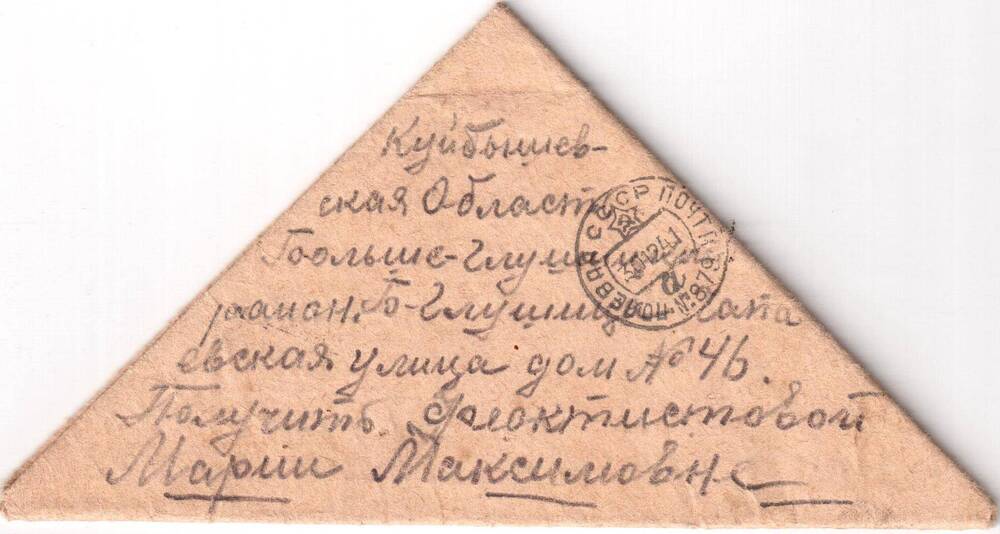 Куйбышев-
ская Область
Больше-Глушицкий
район. Б-Глушица Чапа
евская улица дом № 46.
Получить Феоктистовой
Марии Максимовне
СССР ПОЧТА
ПОЛЕВАЯ № 879
а